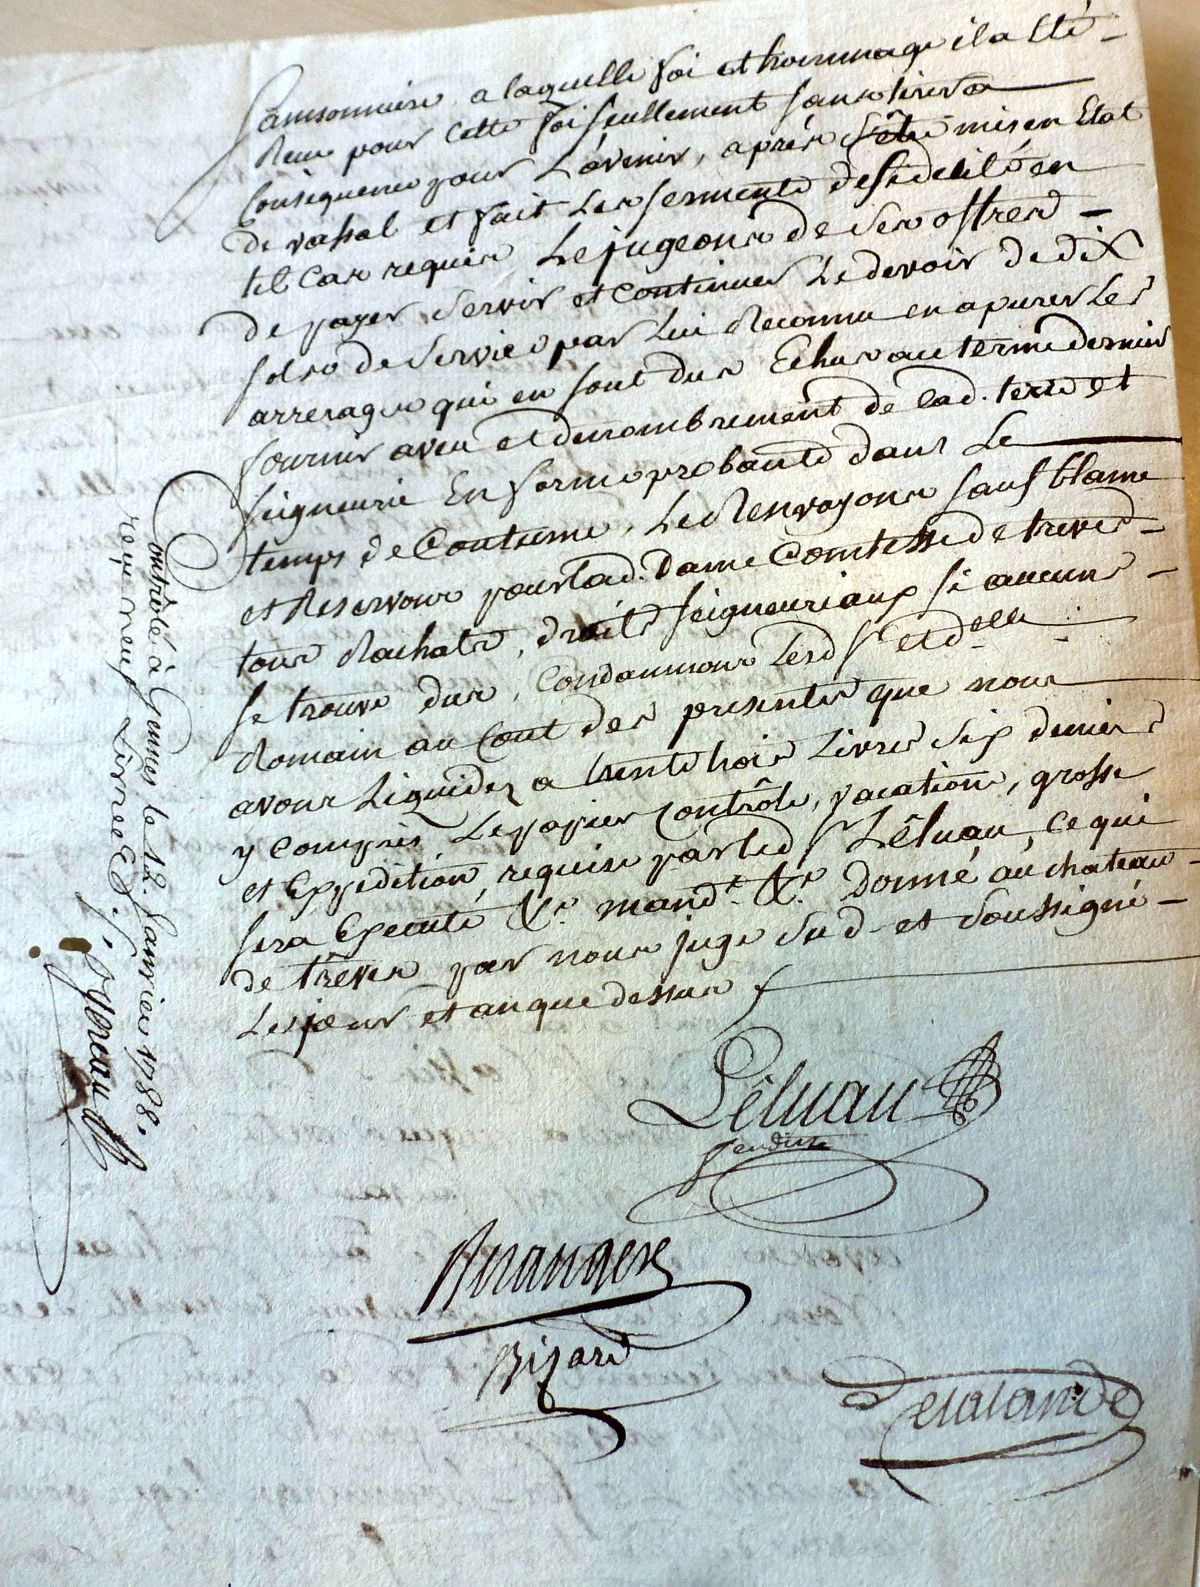 Samsonniere, a laquelle foi et hommage il a êté
Reçu pour cette foi seullement sans tirer a
Conséquence pour L'avenir, après s'être mis en Etat
de vassal et fait Les serments de fidelité en
tel cas requis Le jugeons de ses offres
de payer, servir et continuer Le devoir de dix
sols de service par Lui Reconnu en apurer Les
arrerages qui en sont dus Echus au terme dernier
fournir aveu et denombrement de lad. terre et
seigneurie En forme probante dans Le
temps de Coutume, Le Renvoyons sauf blame
et Reservons pour lad. Dame Comtesse de treves
tous Rachats, droits seigneuriaux si aucuns
se trouve dus, Condamnons Lesd sr et delle
Romain au Cout des presentes que nous
avons Liquidez a trente trois Livres Six deniers
y compris Le papier Contrôle, vacation, grosse
et Expédition, requise par led sr Lêluau, ce qui
sera Executé &c. mandt. &c. Donné au chateau
de trêves par nous juge Sud et Soussigné
Les jour et an que dessus
Lêluau
Beranger
Bizard
Delalande
Controlé à Gennes le 12. Janvier 1788.
reçu neuf Livres
Moreau